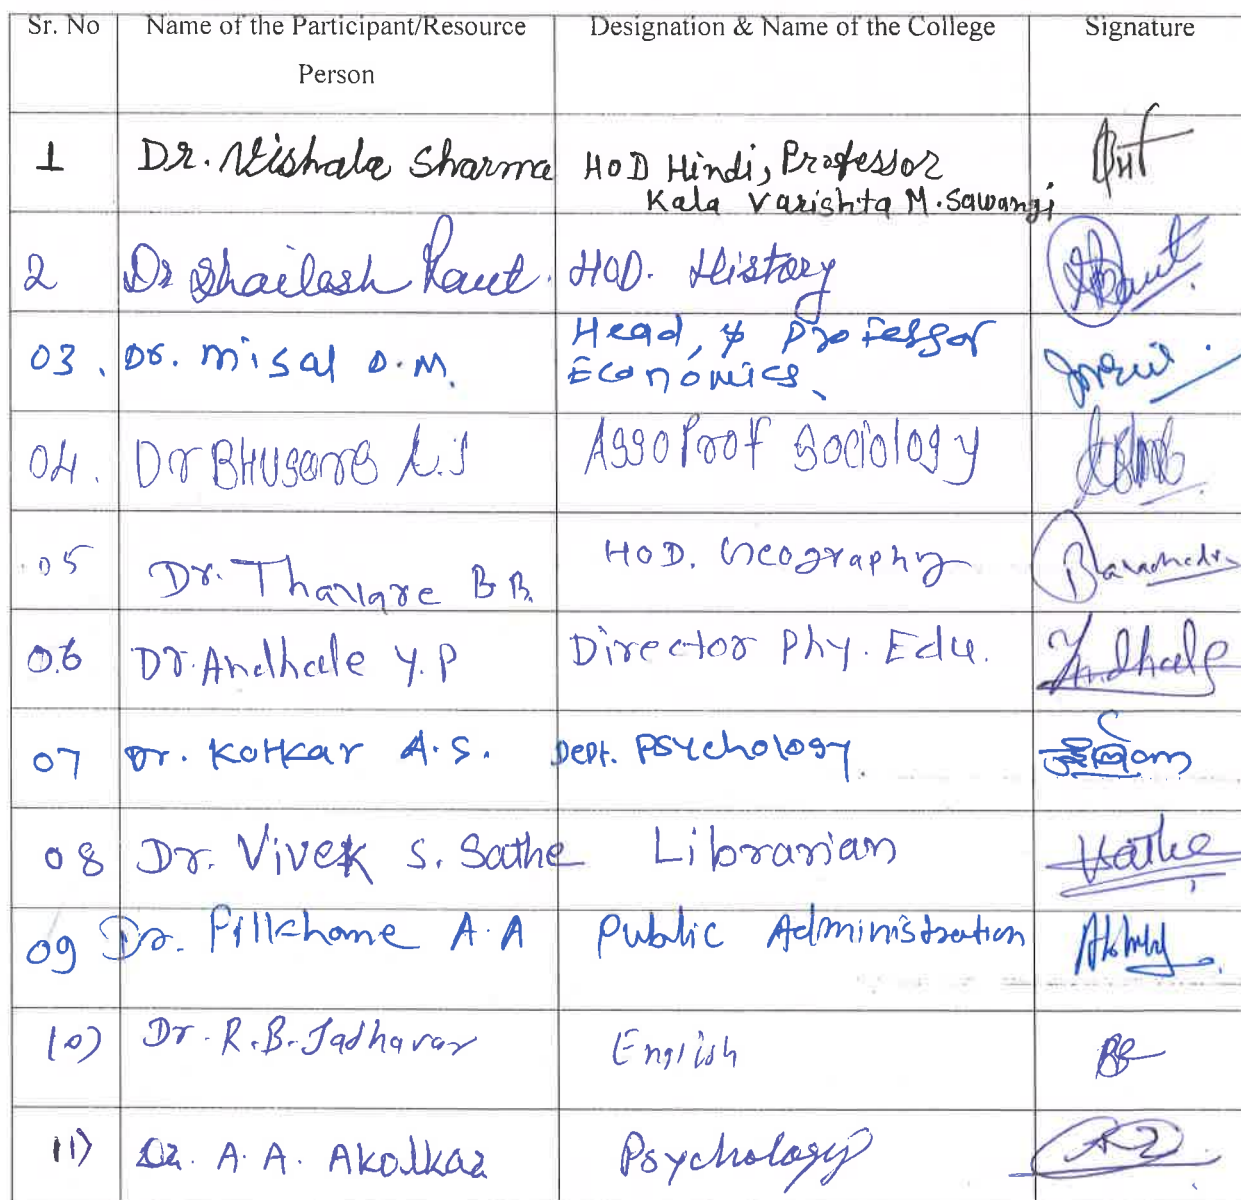 Sr. No Name of the Participant/Resource Person Designation & Name of the College Signature
1 Dr. Vishala Sharma HOD Hindi, Professor
Kala Varishta M. Sawangi
2 Dr Shailash Raut. HOD. History
03. Dr. Misal D.M. Head, & Professor
Economics.
04. Dr BHUSARE Asso Prof Sociology
05 Dr. Thavare B B. HOD. Geography
06 Dr. Andhale Y.P Director Phy. Edu. Andhale
07 Dr. Kotkar A.S. Dept. Psychology.
08 Dr. Vivek S. Sathe Librarian Sathe
09 Dr. Pillkhane A.A Public Administration
10) Dr. R.B. Jadhavar English
11) Dr. A.A. Akolkar Psychology